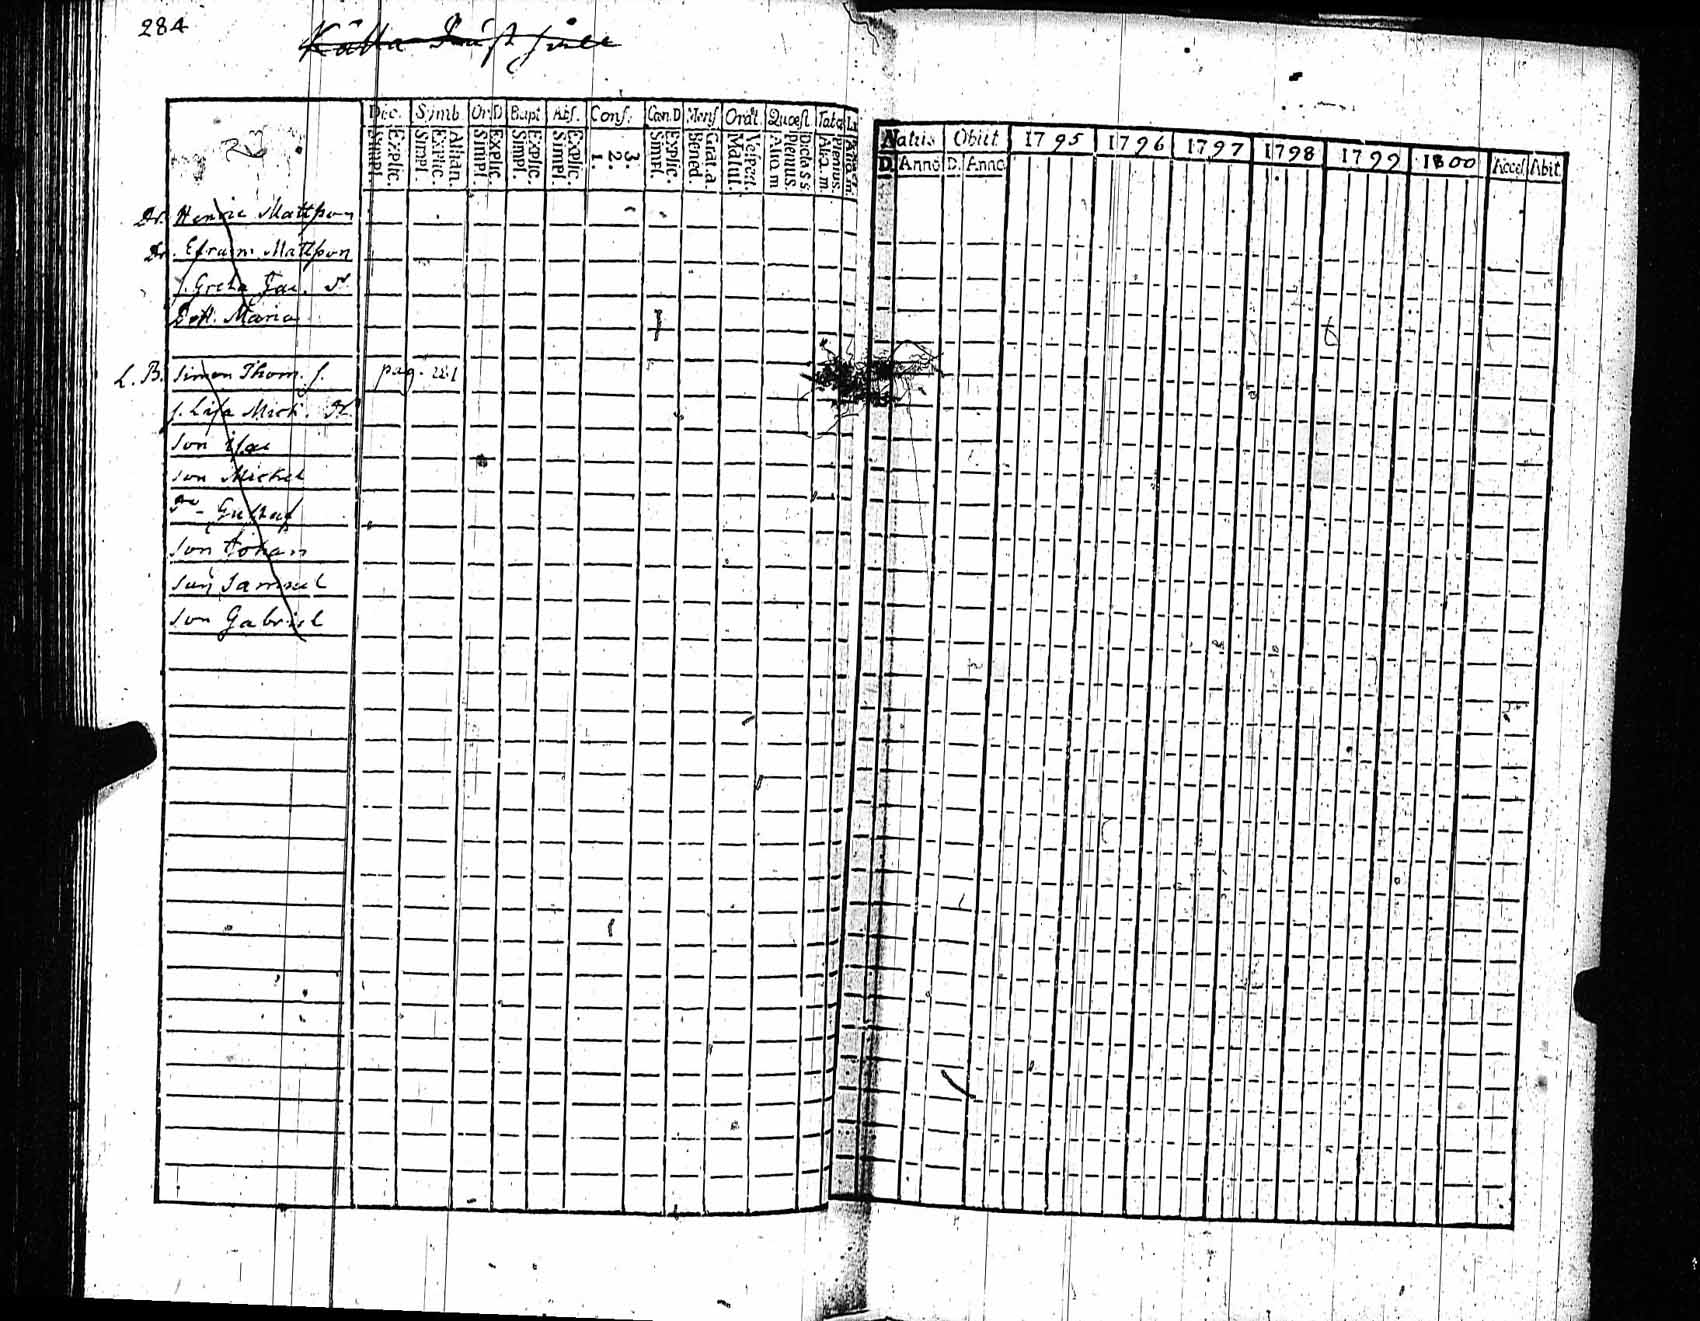 284
Dec. Simb Or.D Bapt Abs. Conf. Cœn.D Mens Orat. Quoest Tab
Simpl. Explic. Simpl. Explic. Athan. Simpl. Explic. Simpl. Explic. Simpl. Explic. 1. 2. 3. Simpl. Explic. Bened. Grat.a. Matut. Vespert. Aliq.m Plenius. Dicta S S Aliq.m. Plenius.
Natus Obiit 1795 1796 1797 1798 1799 1800 Accel Abit
D. Anno D. Anno
Dr. Henric Mattsson
Dr. Efraim Mattsson
Greta
Dott. Maria
L. B. Simon Thom. s. pag. 281
h. Lisa Mich.
Son Isac
Son Michel
Gustaf
Son Johan
Son Samuel
Son Gabriel